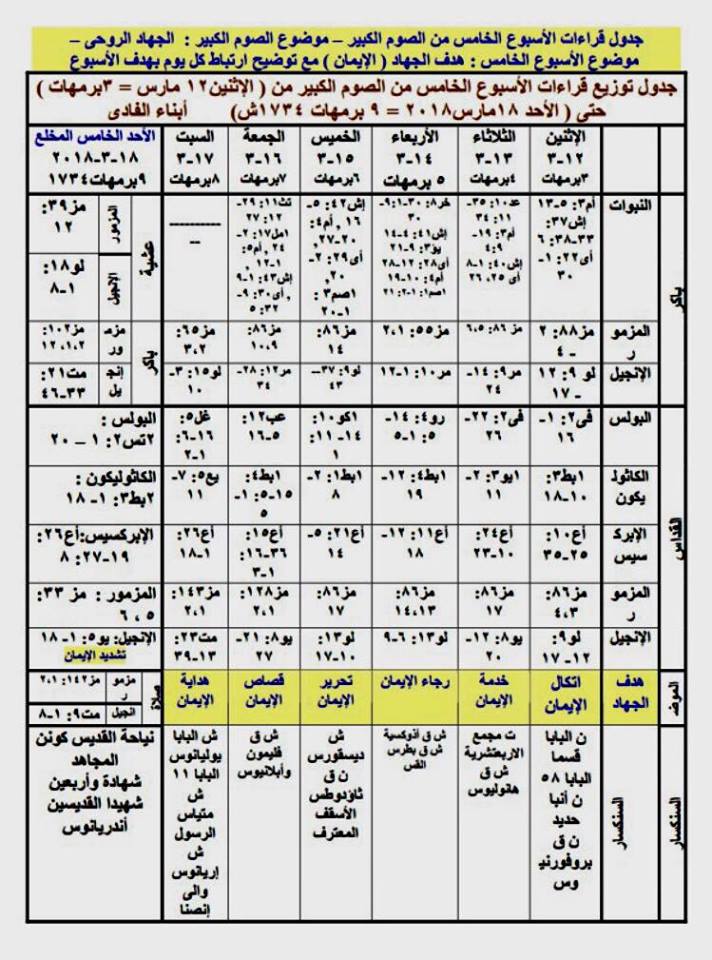 جدول قراءات الأسبوع الخامس من الصوم الكبير – موضوع الصوم الكبير : الجهاد الروحى –
موضوع الأسبوع الخامس : هدف الجهاد ( الإيمان ) مع توضيح ارتباط كل يوم بهدف الأسبوع
جدول توزيع قراءات الأسبوع الخامس من الصوم الكبير من ( الإثنين١٢ مارس = ٣برمهات )
حتى ( الأحد ١٨مارس٢٠١٨ = ٩ برمهات ١٧٣٤ش) أبناء الفادى
الإثنين
٣-١٢
٣برمهات
الثلاثاء
٣-١٣
٤برمهات
الأربعاء
٣-١٤
٥ برمهات
الخميس
٣-١٥
٦برمهات
الجمعة
٣-١٦
٧برمهات
السبت
٣-١٧
٨برمهات
الأحد الخامس المخلع
٢٠١٨-٣-١٨
٩برمهات١٧٣٤
باكر
النبوات
أم٣: ٥-١٣
إش٣٧:
٣٣-٣٨: ٦
أى٢٢: ١-
٣٠
إش٤٠: ١-٨
أى٢٥، ٢٦
إش٤١: ٤-١٤
يؤ٣: ٩-٢١
أى٢٨: ١٢-٢٨
أم٤: ١٠-١٩
إش٤٢: ٥-
١٦ , أم٤:
٢٠-٢٧,
أى٢٩: ٢-
٢٠,
١صم٣ :
١-٢٠
تث١١: ٢٩-
١٢: ٢٧
إش٤٣: ١-٩
, أى٣٠: ٩-
٣٢: ٥
----------
--
عشية
المزمور
مز٣٩:
١٢
الإنجيل
لو١٨:
١-٨
المزمو
ر
مز٨٨: ٢
-٤
مز ٨٦: ٥،٦
مز٥٥: ٢،١
مز٨٦:
١٤
مز٨٦:
١٠،٩
مز٦٥:
٣،٢
باكر
مزم
ور
مز١٠٢:
١،٢، ١٢
الإنجيل
لو ٩: ١٢
-١٧
مر٩: ١٤-
٢٤
مر١٠: ١-١٢
لو٩: ٣٧–
٤٣
مر١٢: ٢٨-
٣٤
لو١٥: ٣-
١٠
إنج
يل
مت٢١:
٣٣-٤٦
القداس
البولس
فى٢: ١-
١٦
فى٢: ٢٢-
٢٦
رو٤: ١٤-
٥: ١-٥
١كو١٠:
١٤- ١١:
١
عب١٢:
٥-١٦
غل٥:
١٦-٦:
١-٢
البولس :
٢تس٢: ١ – ٢٠
الكاثول
يكون
١بط٣:
١٠-١٨
١يو٣: ٢-
١١
١بط٤: ١٢-
١٩
١بط١: ٢-
٨
١بط٤:
١٥-٥: ١-
٥
يع٥: ٧-
١١
الكاثوليكون :
٢بط٣: ١- ١٨
الإبرك
سيس
أع١٠:
٢٥-٣٥
أع٢٤:
١٠-٢٣
أع١١: ١٢-
١٨
أع٢١: ٥-
١٤
أع١٥:
٣٦-١٦:
١-٣
أع٢٦:
١-١٨
الإبركسيس:أع٢٦:
١٩-٢٧: ٨
المزمو
ر
مز٨٦:
٤،٣
مز٨٦:
١٧
مز٨٦:
١٤،١٣
مز٨٦:
١٧
مز١٢٨:
٢،١
مز١٤٣:
٢،١
المزمور : مز ٣٣:
٥ ، ٦
الإنجيل
لو٩:
١٢-١٧
يو٨: ١٢-
٢٠
لو١٣: ٦-٩
لو١٣:
١٠-١٧
يو٨: ٢١-
٢٧
مت٢٣:
١٣-٣٩
الإنجيل: يو٥: ١- ١٨
تشديد الإيمان
الموضـ
هدف
الجهاد
اتكال
الإيمان
خدمة
الإيمان
رجاء الإيمان
تحرير
الإيمان
قصاص
الإيمان
هداية
الإيمان
صلاة
مزمو
ر
مز١٤٢: ٢،١
انجيل
مت٩: ١-٨
السنكسار
السنكسار
ن البابا
قسما
البابا ٥٨
ن أنبا
حديد
ن ق
بروفورني
وس
ت مجمع
الاربعتشرية
ش ق
هانوليوس
ش ق أذوكسية
ش ق بطرس
القس
ش
ديسقورس
ن ق
ثاؤدوطس
الأسقف
المعترف
ش ق
فليمون
وأبلانيوس
ش البابا
يوليانوس
البابا ١١
ش
متياس
الرسول
ش
إريانوس
والى
إنصنا
نياحة القديس كونن
المجاهد
شهادة وأربعين
شهيدا القديسين
أندريانوس